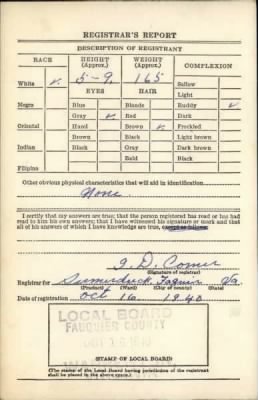 REGISTRAR'S REPORT
DESCRIPTION OF REGISTRANT
RACE HEIGHT (Approx.) WEIGHT (Approx.) COMPLEXION
White ✓ 5-9 165 Sallow
EYES HAIR Light
Negro Blue Blonde Ruddy ✓
Gray ✓ Red Dark
Oriental Hazel Brown ✓ Freckled
Brown Black Light brown
Indian Black Gray Dark brown
Bald Black
Filipino
Other obvious physical characteristics that will aid in identification
None
I certify that my answers are true; that the person registered has read or has had
read to him his own answers; that I have witnessed his signature or mark and that
all of his answers of which I have knowledge are true, except as follows:
J. D. Comer
(Signature of registrar)
Registrar for Sumerduck Va
(Precinct) (Ward) (City or county) (State)
Date of registration Oct 16 1940
LOCAL BOARD
FAUQUIER COUNTY
OCT 16 1940
(STAMP OF LOCAL BOARD)
(The stamp of the Local Board having jurisdiction of the registrant
shall be placed in the above space.)